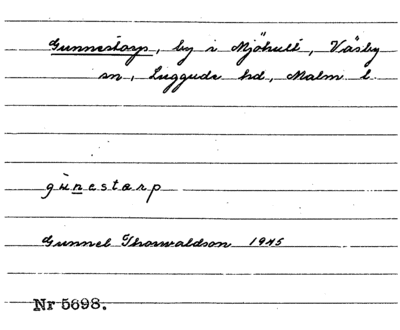 Gunnestorp, by i Mjöhult, Väsby
sn, Luggude hd, Malm l.
gùnestarp
Gunnel Thorwaldson 1945
Nr 5698.